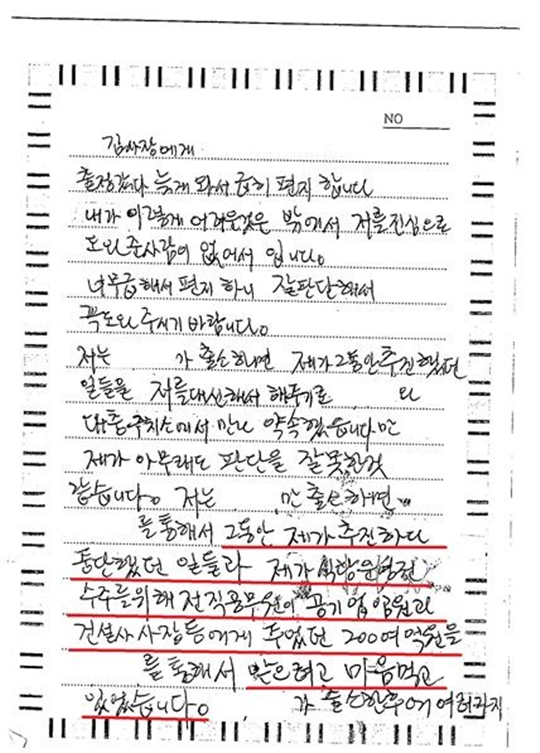 NO
김사장에게
출정갔다 늦게 와서 급히 편지 합니다
내가 이렇게 어려운것은 밖에서 저를 진심으로
도와 준사람이 없어서 입니다.
너무급해서 편지 하니 잘판단해서
꼭도와 주시기 바랍니다.
저는 가 출소하면 제가그동안추진했던
일들을 저를대신해서 해주기로 와
대충 에서 만나 약속했습니다만
제가 아무래도 판단을 잘못한것
같습니다. 저는 만 출소하면
를통해서 그동안 제가 추진하다
중단했던 일들과 제가 식당운영권
수주를위해 전직공무원이 공기업임원과
건설사 사장등에게 주었던 200여 억원을
를 통해서 받으려고 마음먹고
있었습니다. 가 출소한후에 여러가지